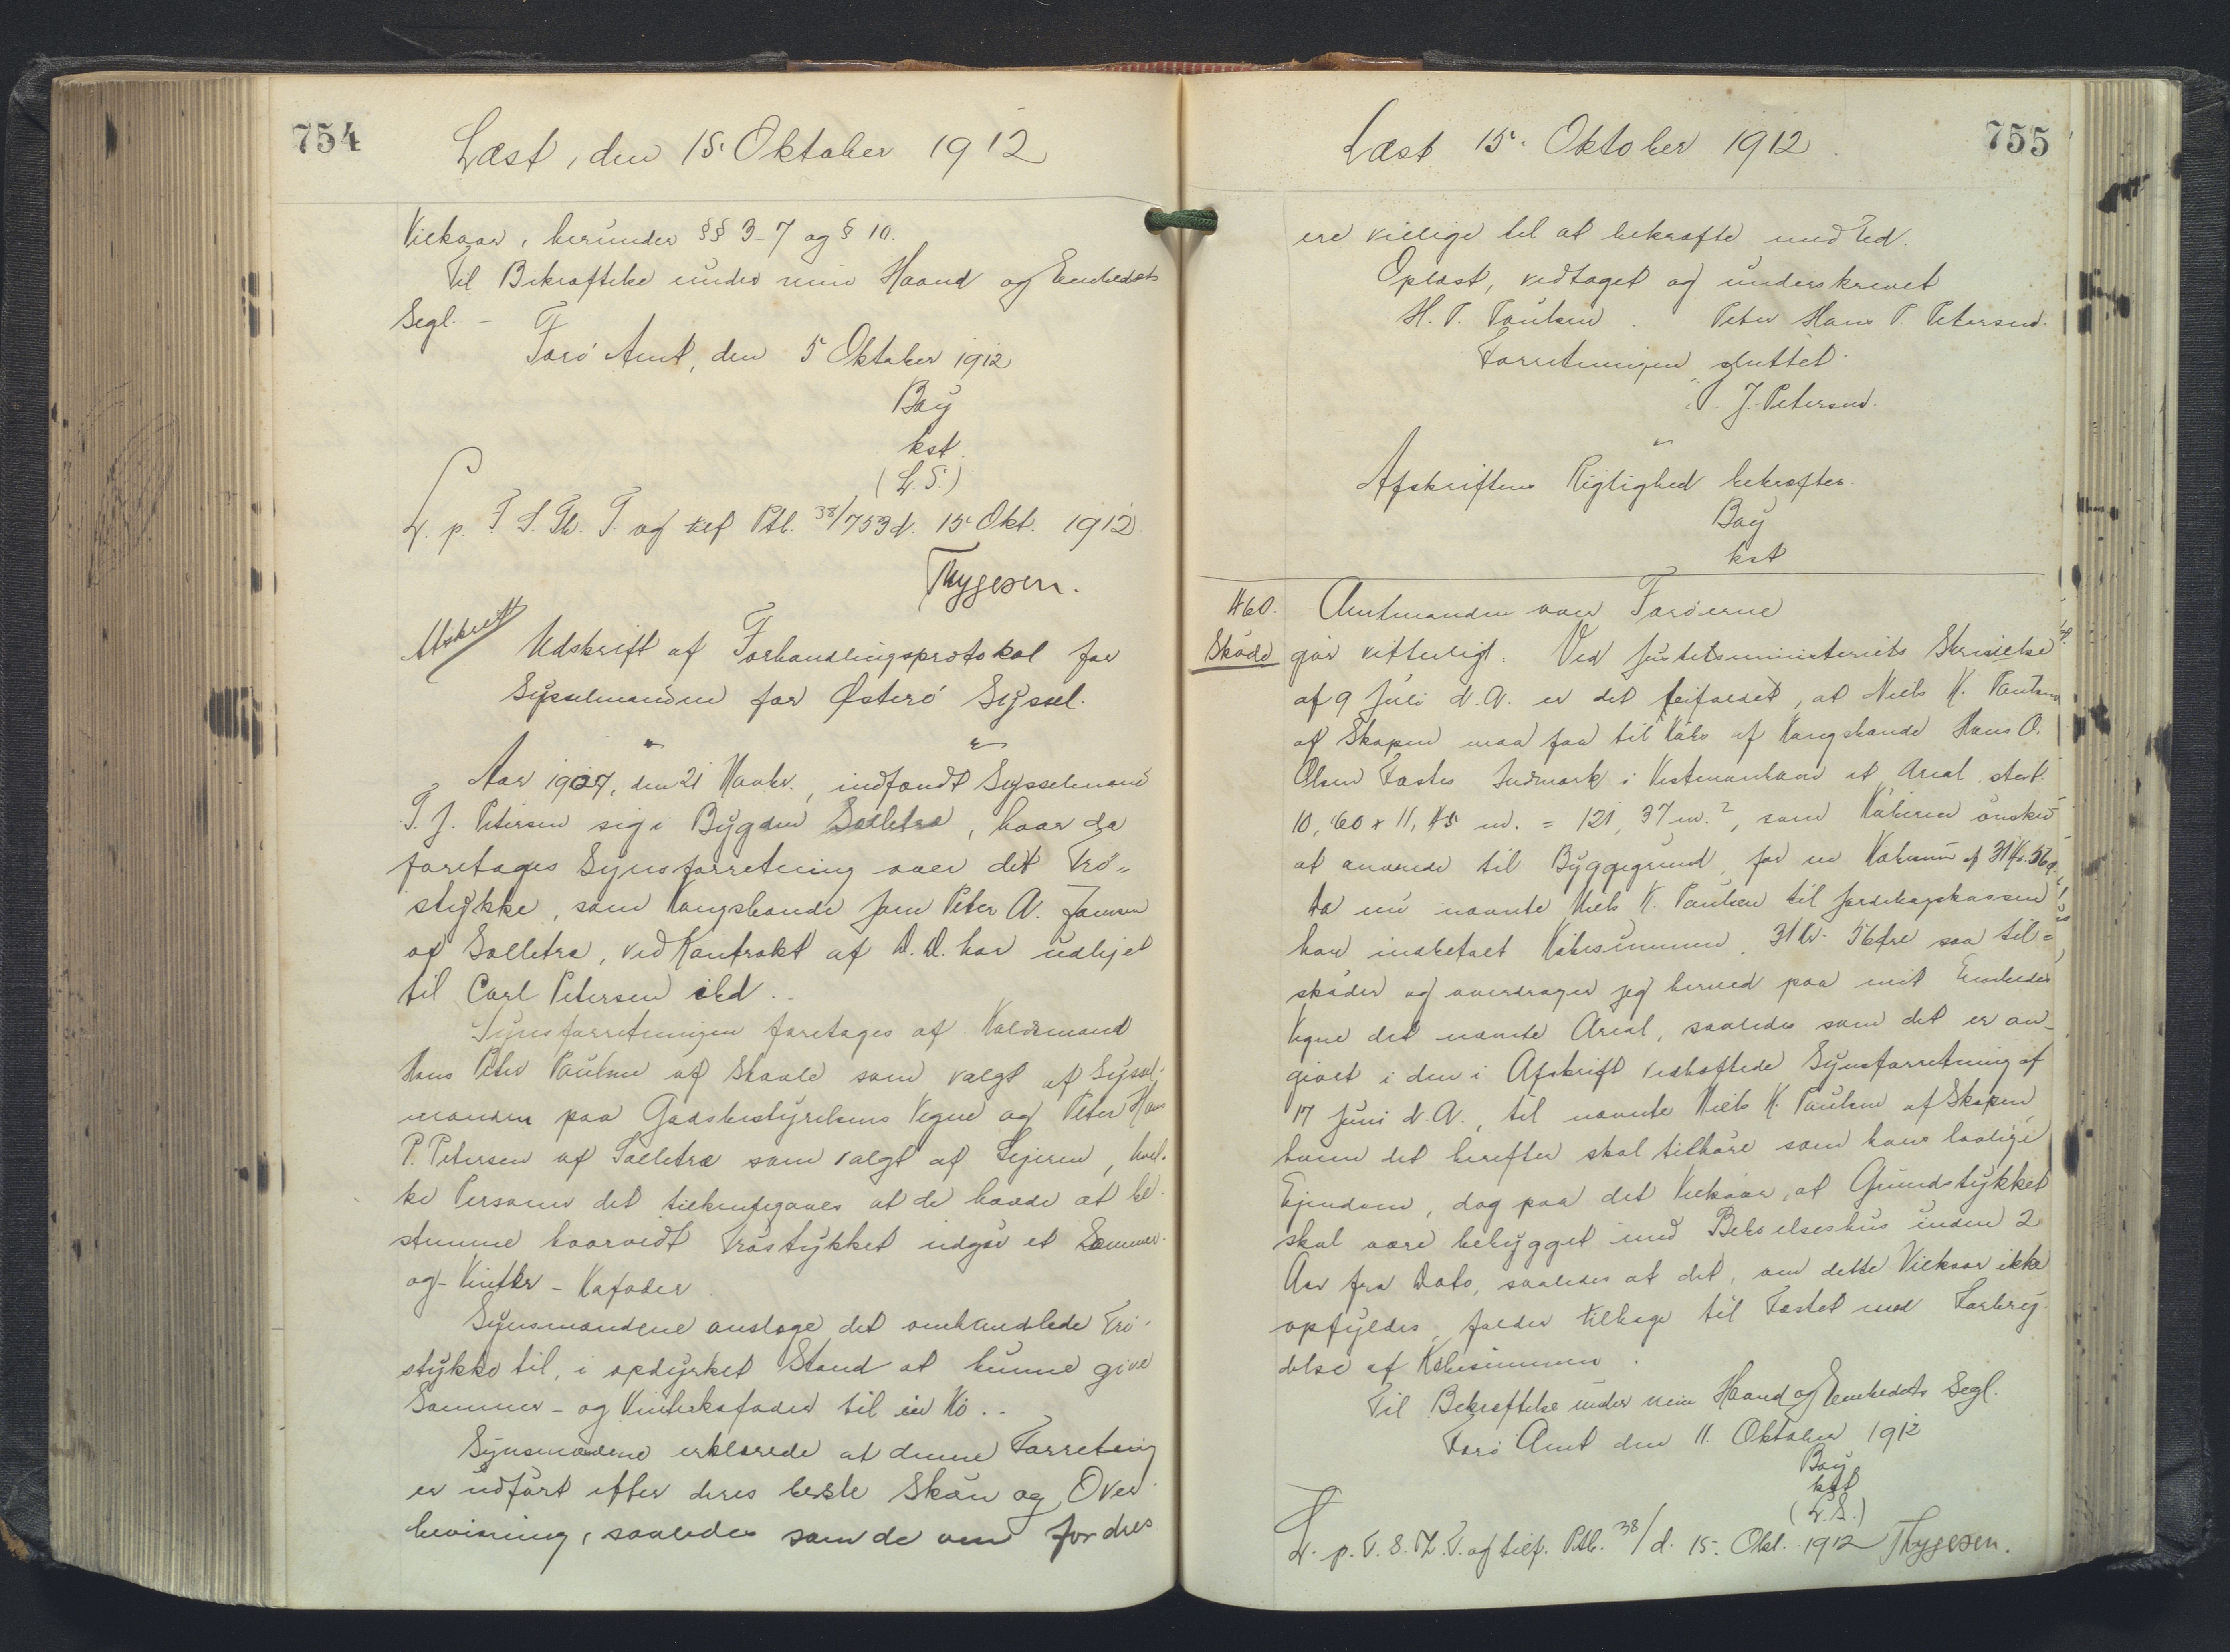 754
Læst, den 15. Oktober 1912
Vilkaar, herunder §§ 3-7 og § 10.
Til Bekræftelse under min Haand og Embedets
Segl. -
Færø Amt, den 5 Oktober 1912
Bay
kst.
(L. S.)
L. p. F. S. Th. T. og tilf Ptb. 38/753 d. 15 Okt. 1912.
Thygesen.
Afskrift
Udskrift af Forhandlingsprotokol for
Sysselmanden for Østerø Syssel.
Aar 1907, den 21 Novbr., indfandt Sysselmand
P. J. Petersen sig i Bygden Selletræ, hvor da
foretages Synsforretning over det Trø-
stykke, som Kongsbonde Joen Peter A. Joensen
af Selletræ, ved Kontrakt af D. D. har udlejet
til Carl Petersen ibd.
Synsforretningen foretages af Voldsmand
Hans Peter Poulsen af Skaale som valgt af Syssel-
manden paa Godsbestyrelsens Vegne og Peter Hans
P. Petersen af Selletræ som valgt af Lejeren, hvil-
ke Personer det tilkendegaves at de havde at be-
stemme hvorvidt Trøstykket udgør et Sommer-
og Vinter-Kofoder.
Synsmændene ansloge det omhandlede Trø-
stykke til, i opdyrket Stand at kunne give
Sommer- og Vinterkofoder til en Ko..
Synsmændene erklærede at denne Forretning
er udført efter deres bedste Skøn og Over-
bevisning, saaledes som de om fordres
755
Læst 15. Oktober 1912.
ere villige til at bekræfte med Ed.
Oplæst, vedtaget og underskrevet
H. P. Poulsen. Peter Hans P. Petersen.
Forretningen sluttet.
P. J. Petersen.
Afskriftens Rigtighed bekræfter.
Bay
kst
460.
Skøde
Amtmanden over Færøerne
gør vitterligt: Ved Justitsministeriets Skrivelse
af 9 Juli d. A. er det bifaldet, at Niels K. Poulsen
af Skopen maa faa til Købs af Kongsbonde Hans O.
Olsen Fæstes Indmark i Vestmanhavn et Areal, stort
10,60 x 11,45 m. = 121,37 m.², som Køberen ønsker
at anvende til Byggegrund, for en Købesum af 31 Kr. 56 Ø.
Da nu nævnte Niels K. Poulsen til Jordebogskassen
har indbetalt Købesummen 31 Kr. 56 Øre saa til-
skøder og overdrager jeg herved paa mit Embeds
Vegne det nævnte Areal, saaledes som det er an-
givet i den i Afskrift vedhæftede Synsforretning af
17 Juni d. A., til nævnte Niels K. Poulsen af Skopen,
hvem det herefter skal tilhøre som hans lovlige
Ejendom, dog paa det Vilkaar, at Grundstykket
skal være bebygget med Beboelseshus inden 2
Aar fra Dato, saaledes at det, om dette Vilkaar ikke
opfyldes, falder tilbage til Fæstet med Forbry-
delse af Købesummen.
Til Bekræftelse under min Haand og Embedets Segl.
Færø Amt den 11. Oktober 1912
Bay
kst
(L. S.)
L. p. F. S. Th. T. og tilf. Ptb. 38/ d. 15. Okt. 1912 Thygesen.